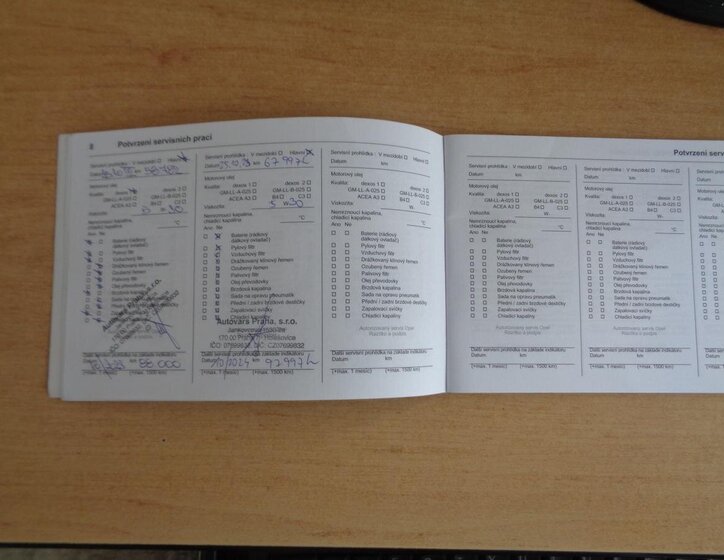 8 Potvrzení servisních prací
Servisní prohlídka: V mezidobí Hlavní
Datum km
Motorový olej
Kvalita: dexos 1 dexos 2
GM-LL-A-025 GM-LL-B-025
ACEA A3 B4 C3
Viskozita 5 W 30
Nemrznoucí kapalina,
chladicí kapalina °C
Ano Ne
Baterie (rádiový
dálkový ovladač)
Pylový filtr
Vzduchový filtr
Drážkovaný klínový řemen
Ozubený řemen
Palivový filtr
Olej převodovky
Brzdová kapalina
Sada na opravu pneumatik
Přední / zadní brzdové destičky
Zapalovací svíčky
Chladicí kapalina
Další servisní prohlídka na základě indikátoru
Datum km 88 000
(+max. 1 měsíc) (+max. 1500 km)
Servisní prohlídka: V mezidobí Hlavní
Datum km
Motorový olej
Kvalita: dexos 1 dexos 2
GM-LL-A-025 GM-LL-B-025
ACEA A3 B4 C3
Viskozita 5 W 30
Nemrznoucí kapalina,
chladicí kapalina °C
Ano Ne
Baterie (rádiový
dálkový ovladač)
Pylový filtr
Vzduchový filtr
Drážkovaný klínový řemen
Ozubený řemen
Palivový filtr
Olej převodovky
Brzdová kapalina
Sada na opravu pneumatik
Přední / zadní brzdové destičky
Zapalovací svíčky
Chladicí kapalina
Autovars Praha, s.r.o.
170 00 Praha Holešovice
Další servisní prohlídka na základě indikátoru
Datum 10/2024 km
(+max. 1 měsíc) (+max. 1500 km)
Servisní prohlídka: V mezidobí Hlavní
Datum km
Motorový olej
Kvalita: dexos 1 dexos 2
GM-LL-A-025 GM-LL-B-025
ACEA A3 B4 C3
Viskozita W
Nemrznoucí kapalina,
chladicí kapalina °C
Ano Ne
Baterie (rádiový
dálkový ovladač)
Pylový filtr
Vzduchový filtr
Drážkovaný klínový řemen
Ozubený řemen
Palivový filtr
Olej převodovky
Brzdová kapalina
Sada na opravu pneumatik
Přední / zadní brzdové destičky
Zapalovací svíčky
Chladicí kapalina
Autorizovaný servis Opel
Razítko a podpis
Další servisní prohlídka na základě indikátoru
Datum km
(+max. 1 měsíc) (+max. 1500 km)
Potvrzení serv
Servisní prohlídka: V mezidobí Hlavní
Datum km
Motorový olej
Kvalita: dexos 1 dexos 2
GM-LL-A-025 GM-LL-B-025
ACEA A3 B4 C3
Viskozita W
Nemrznoucí kapalina,
chladicí kapalina °C
Ano Ne
Baterie (rádiový
dálkový ovladač)
Pylový filtr
Vzduchový filtr
Drážkovaný klínový řemen
Ozubený řemen
Palivový filtr
Olej převodovky
Brzdová kapalina
Sada na opravu pneumatik
Přední / zadní brzdové destičky
Zapalovací svíčky
Chladicí kapalina
Autorizovaný servis Opel
Razítko a podpis
Další servisní prohlídka na základě indikátoru
Datum km
(+max. 1 měsíc) (+max. 1500 km)
Servisní prohlídka: V mezidobí Hlavní
Datum km
Motorový olej
Kvalita: dexos 1 dexos 2
GM-LL-A-025 GM-LL-B-025
ACEA A3 B4 C3
Viskozita W
Nemrznoucí kapalina,
chladicí kapalina °C
Ano Ne
Baterie (rádiový
dálkový ovladač)
Pylový filtr
Vzduchový filtr
Drážkovaný klínový řemen
Ozubený řemen
Palivový filtr
Olej převodovky
Brzdová kapalina
Sada na opravu pneumatik
Přední / zadní brzdové destičky
Zapalovací svíčky
Chladicí kapalina
Autorizovaný servis Opel
Razítko a podpis
Další servisní prohlídka na základě indikátoru
Datum km
(+max. 1 měsíc) (+max. 1500 km)